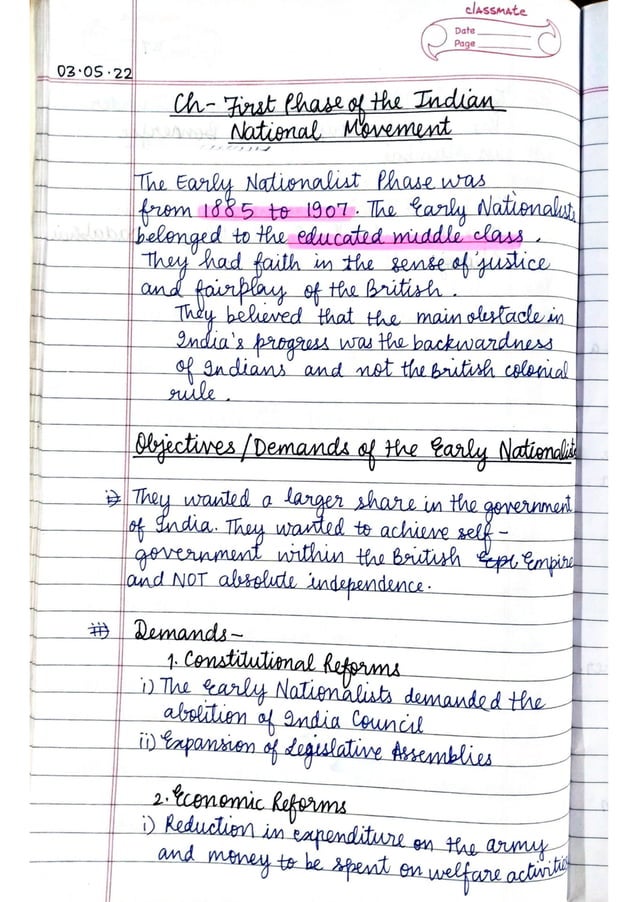 classmate
Date
Page
03·05·22
Ch- First Phase of the Indian
National Movement
The Early Nationalist Phase was
from 1885 to 1907. The Early Nationalists
belonged to the educated middle class.
They had faith in the sense of justice
and fairplay of the British.
They believed that the main obstacle in
India's progress was the backwardness
of Indians and not the British colonial
rule.
Objectives/Demands of the Early Nationalists
i) They wanted a larger share in the government
of India. They wanted to achieve self-
government within the British Empire
and NOT absolute independence.
ii) Demands-
1. Constitutional Reforms
i) The Early Nationalists demanded the
abolition of India Council
ii) Expansion of Legislative Assemblies
2. Economic Reforms
i) Reduction in expenditure on the army
and money to be spent on welfare activities